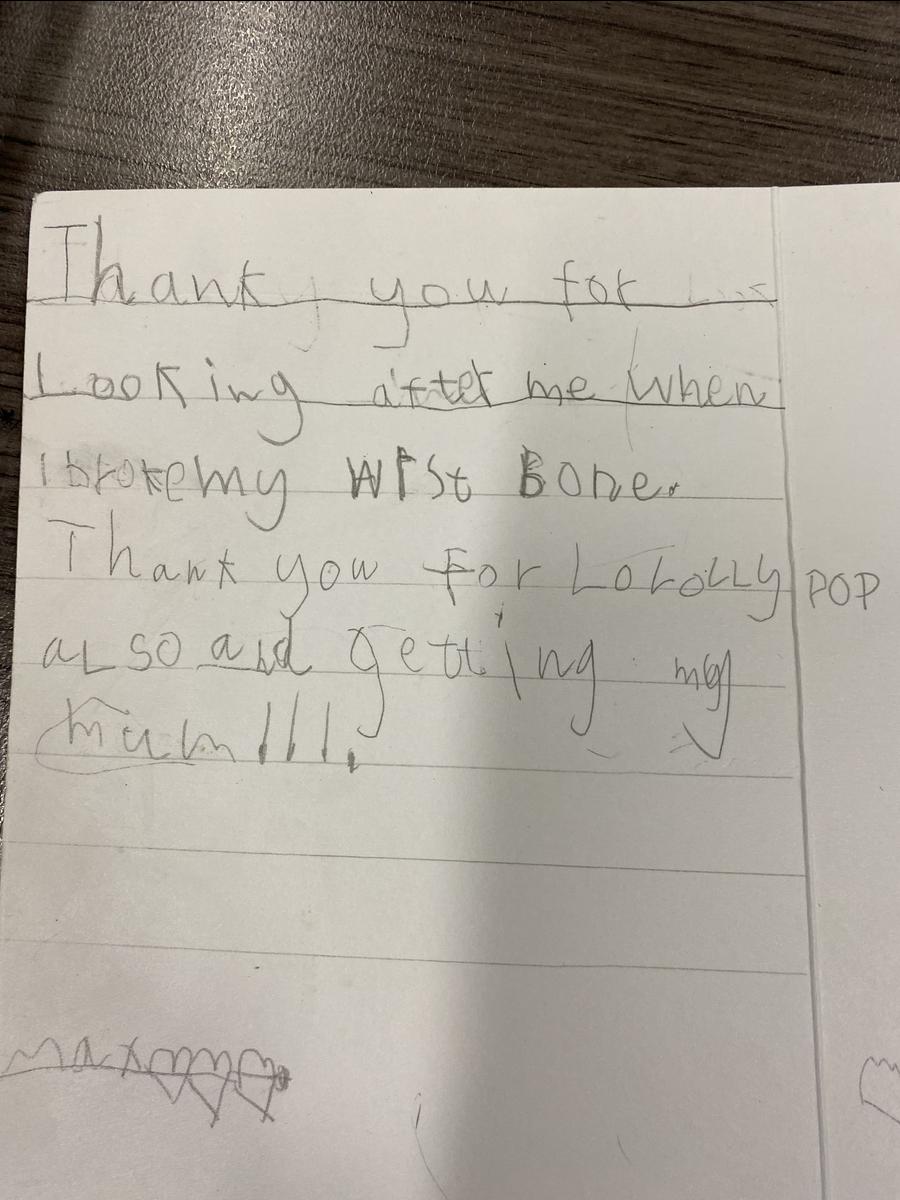 Thank you for
Looking after me when
i broke my wrst Bone.
Thank you For LoLoLLy POP
aLso and getting my
mum!!!.
max